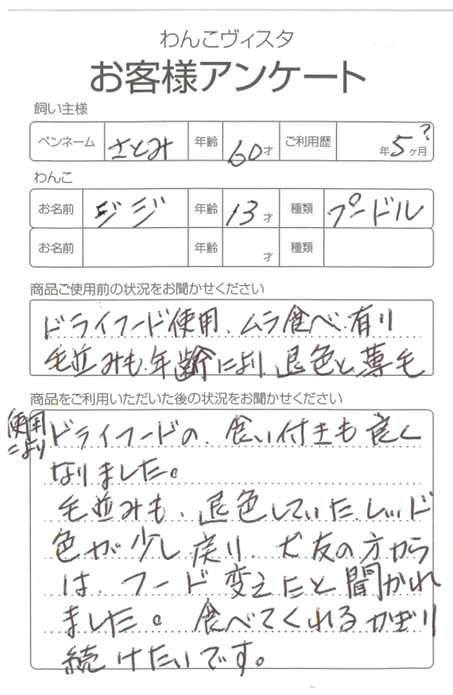 わんこヴィスタ
お客様アンケート
飼い主様
ペンネーム さとみ 年齢 60才 ご利用歴 年5ヶ月?
わんこ
お名前 ジジ 年齢 13才 種類 プードル
お名前 年齢 才 種類
商品ご使用前の状況をお聞かせください
ドライフード使用、ムラ食べ有り
毛並みも年齢により退色と薄毛
商品をご利用いただいた後の状況をお聞かせください
使用により
ドライフードの、食い付きも良く
なりました。
毛並みも、退色していた、レッド
色が少し戻り、犬友の方から
は、フード変えたと聞かれ
ました。食べてくれるかぎり
続けたいです。